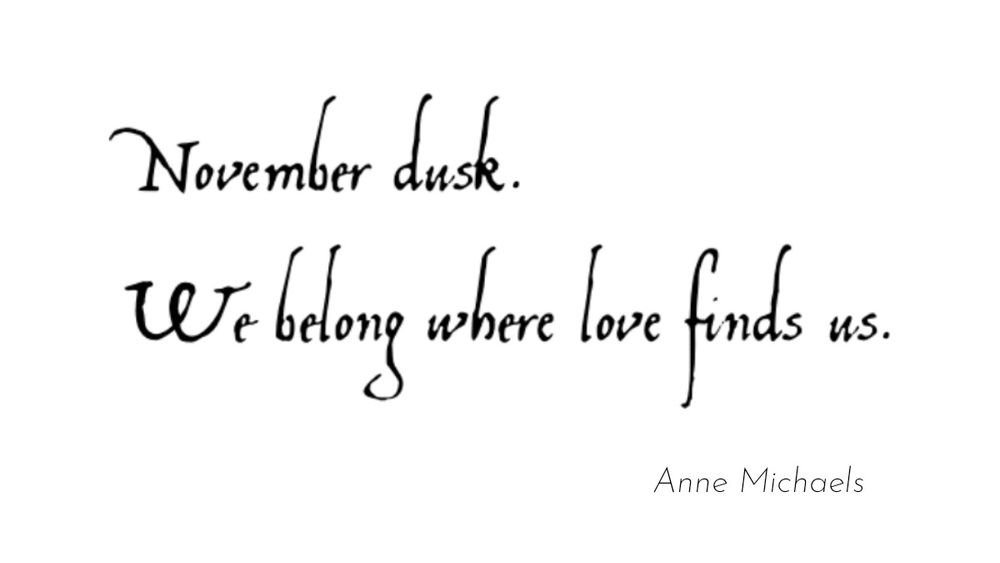 November dusk.
We belong where love finds us.
Anne Michaels